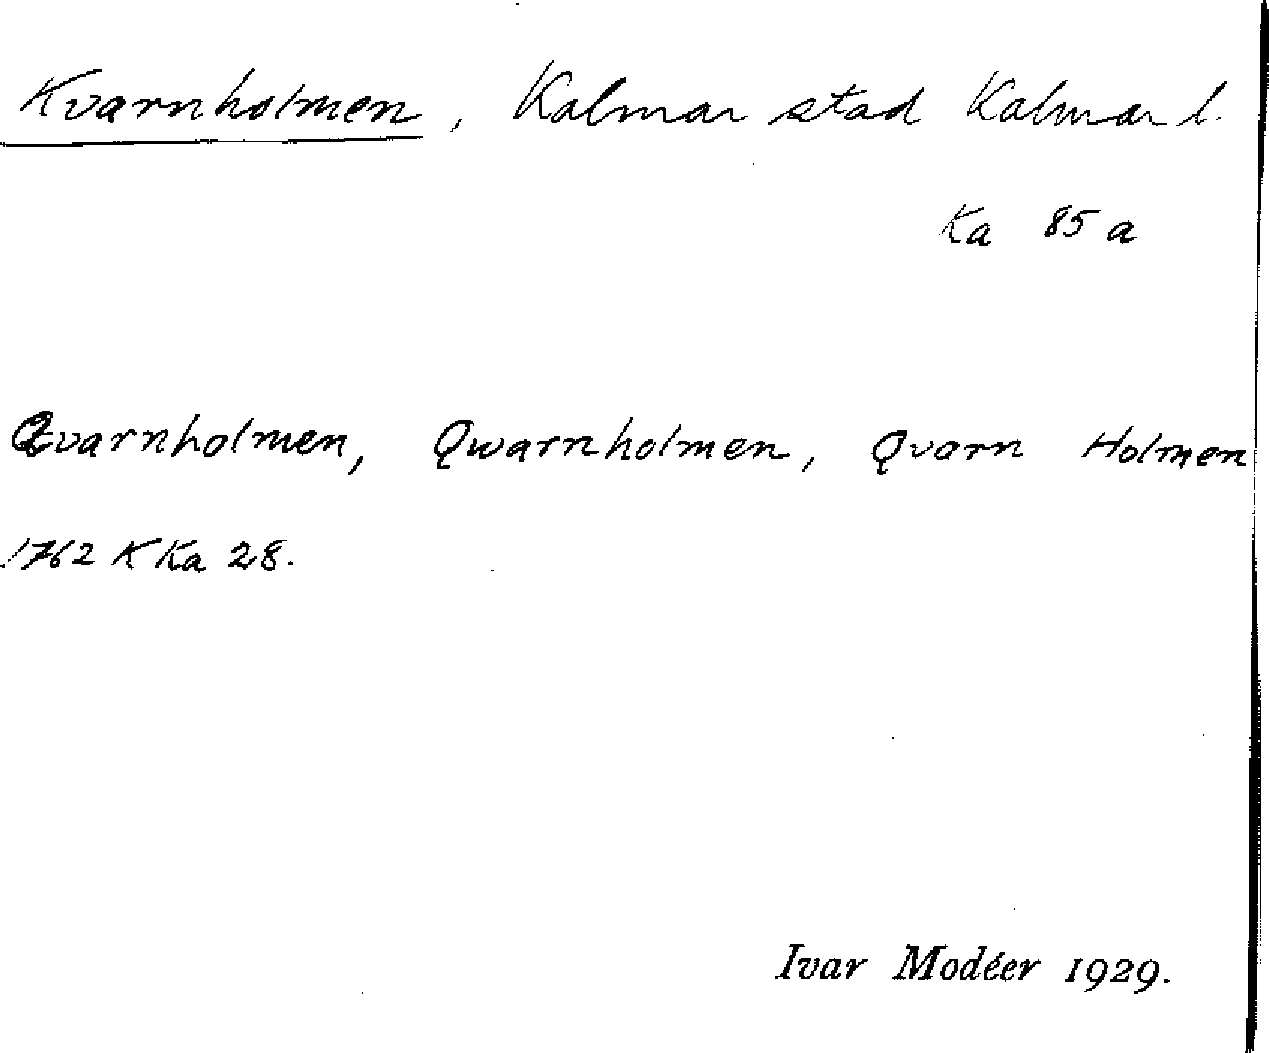 Kvarnholmen, Kalmar stad Kalmar l.
Ka 85 a
Qvarnholmen, Qwarnholmen, Qvarn Holmen
1762 K Ka 28.
Ivar Modéer 1929.